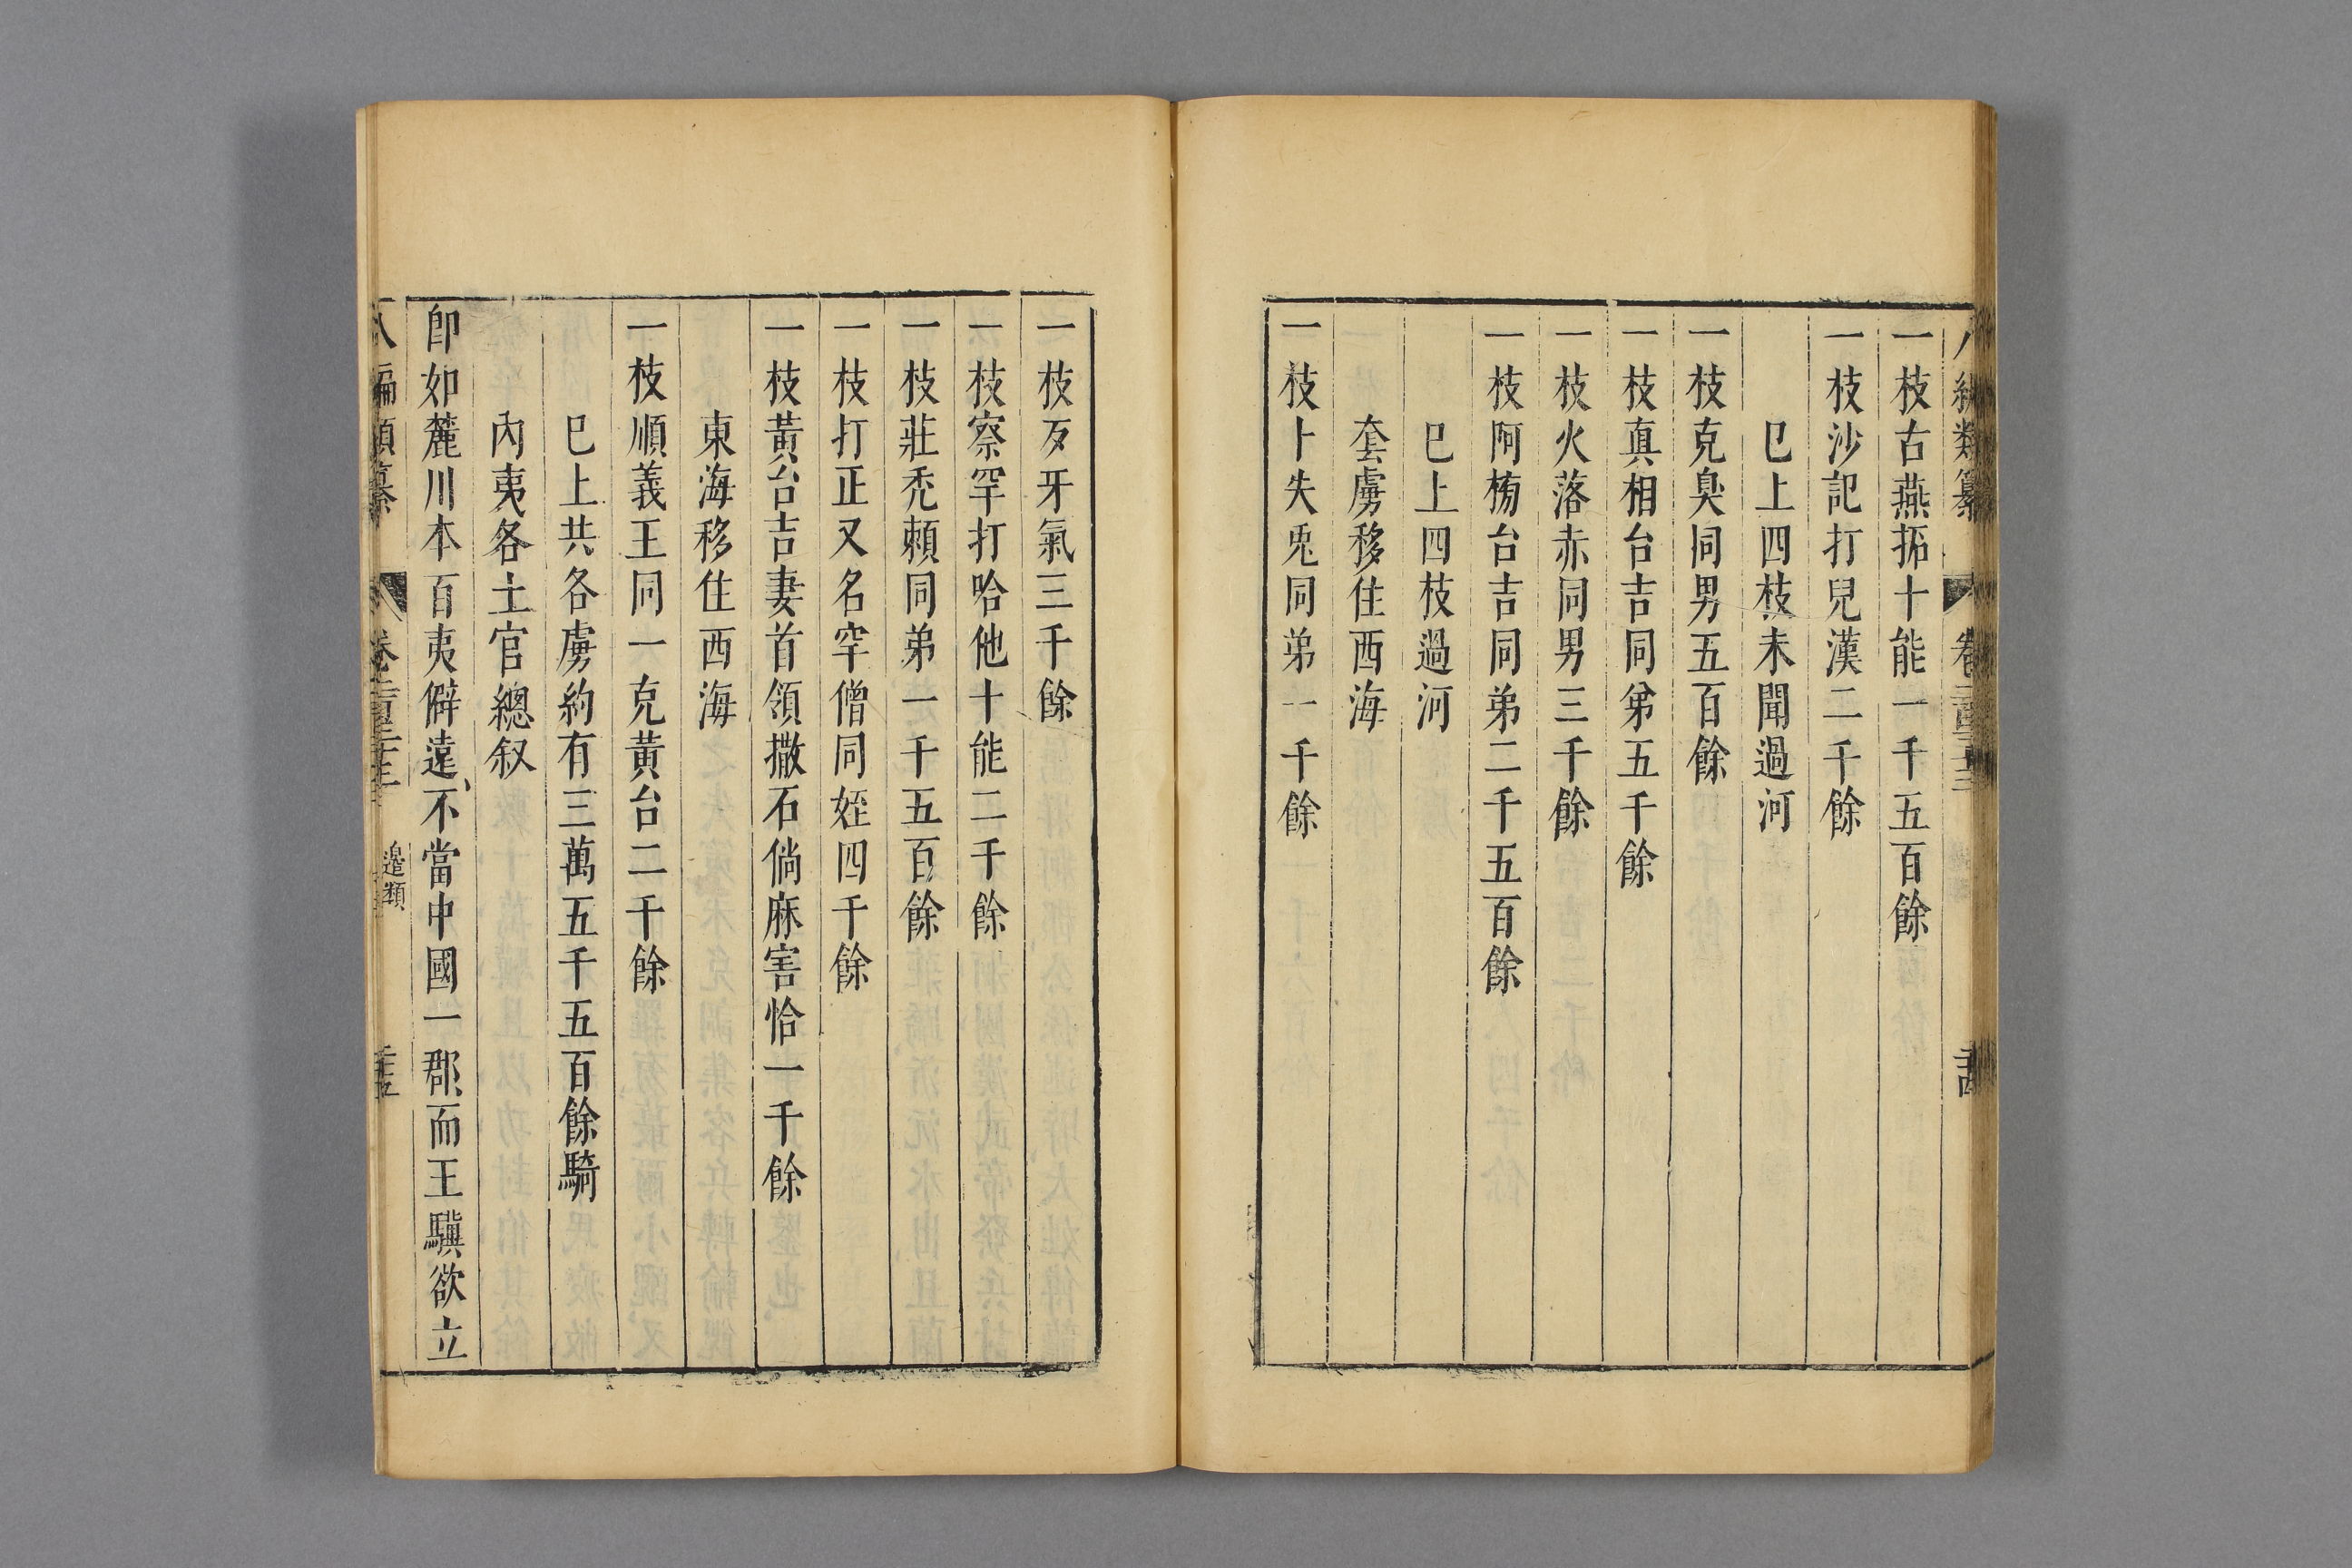 一枝古燕拓十能一千五百餘
一枝沙記打兒漢二千餘
巳上四枝未聞過河
一枝克臭同男五百餘
一枝真相台吉同弟五千餘
一枝火落赤同男三千餘
一枝阿㭠台吉同弟二千五百餘
巳上四枝過河
套虜移住西海
一枝卜失兎同弟一千餘
一枝歹牙氣三千餘
一枝察罕打哈他十能二千餘
一枝莊禿頼同弟一千五百餘
一枝打正又名罕僧同姪四千餘
一枝黃台吉妻首領撒石倘麻害恰一千餘
東海移住西海
一枝順義王同一克黃台二千餘
巳上共各虜約有三萬五千五百餘騎
內夷各土官總叙
卽如麓川本百夷僻遠、不當中國一郡而王驥欲立
八編類纂
邉類